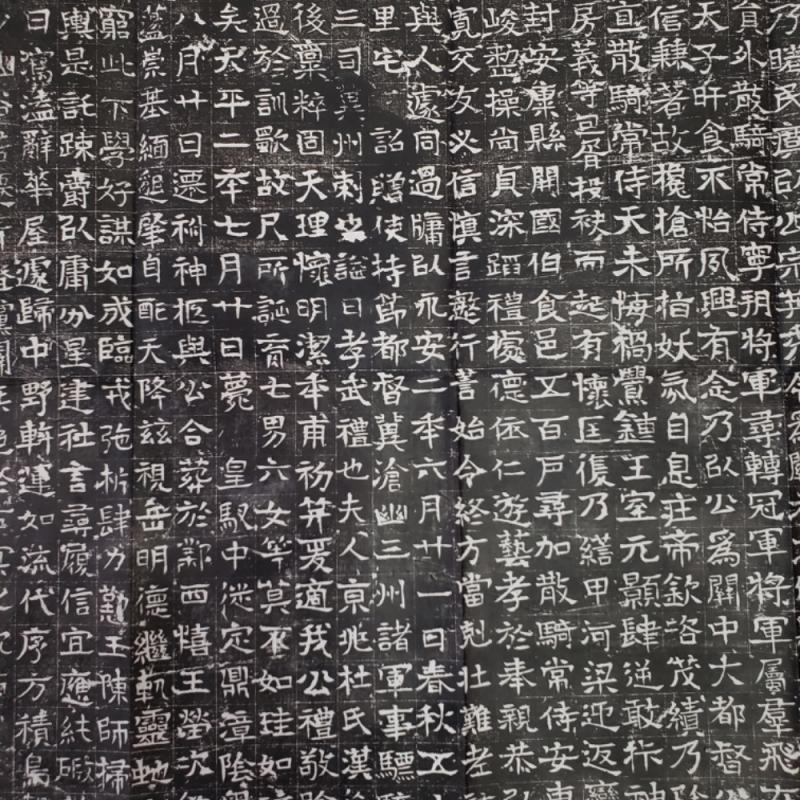 員外散騎常侍寧朔將軍尋轉冠軍將軍屬羣飛
天子旰食不怡夙興有念乃以公為關中大都督
信穎著故攙搶所指妖氛自息莊帝欽咨茂績乃除
直散騎常侍天未悔禍王室元顥肆逆敢
房義等投袂而起有懷匡復乃繕甲河梁迎返
封安康縣開國伯食邑五百戶尋加散騎常侍安
峻整操尚貞深蹈禮據德依仁遊藝孝於奉親恭
寬交友必信慎言愨行善始令終方當剋壯難老
與人遽同過牖以永安二年六月廿一日春秋五
里宅詔贈使持節都督冀滄幽三州諸軍事驃
三司冀州刺史謚曰孝武禮也夫人京兆杜氏漢
後稟粹固天理懷明潔年甫初笄爰適我公禮敬
過於訓歌故凡所誕育七男六女等莫不如珪如
矣天平二年七月廿日薨皇馭中徙定鼎漳陰
八月廿日遷祔神柩與公合葬於鄴西王塋次
蓋崇基緬邈肇自配天降茲視岳明德繼軌靈地
窮此下學好謀如成臨戎弛柝肆力勤王陳師掃
輿是託疎爵以庸分星建社言尋履信宜應純嘏
曰寫溘辭華屋遽歸中野運如流代序方積鳥